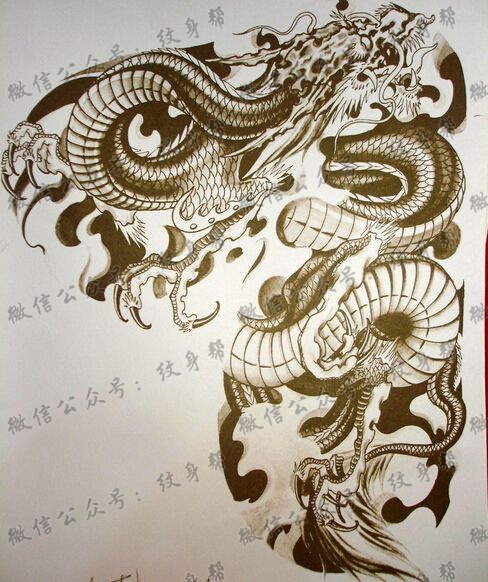 微信公众号：纹身帮
微信公众号：纹身帮
微信公众号：纹身帮
微信公众号：纹身帮
微信公众号：纹身帮
微信公众号：纹身帮